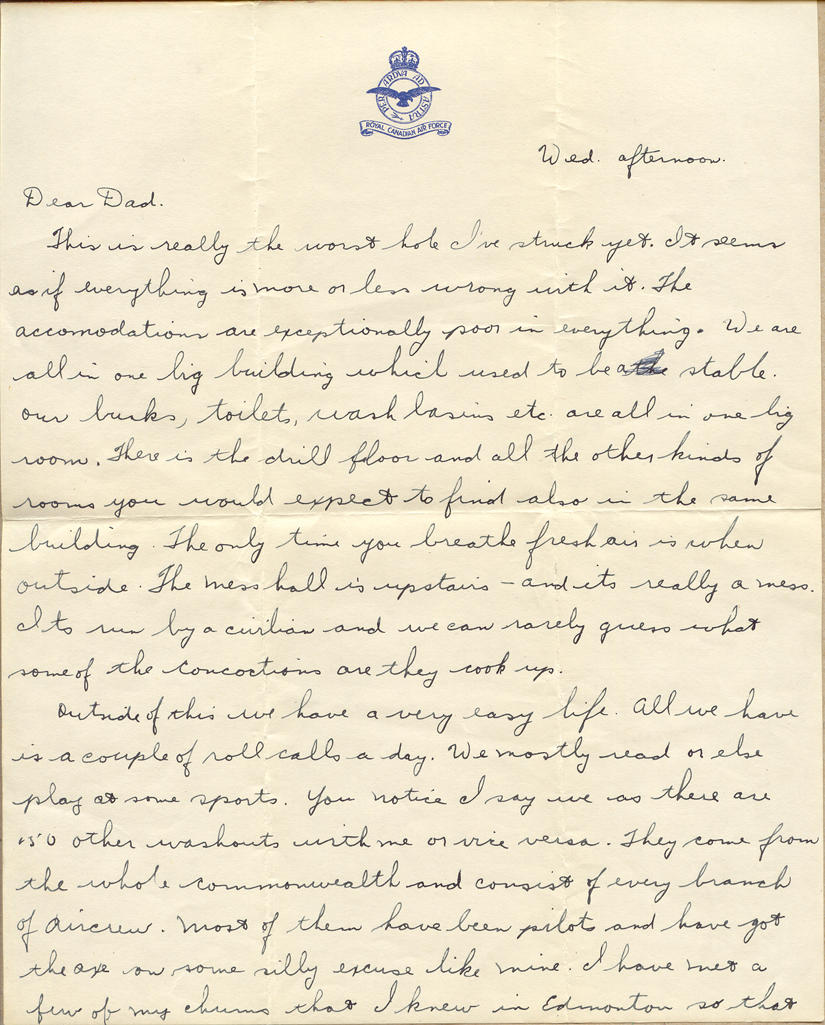 PER ARDVA AD ASTRA
ROYAL CANADIAN AIR FORCE
Wed. afternoon.
Dear Dad.
This is really the worst hole I've struck yet. It seems
as if everything is more or less wrong with it. The
accomodations are exceptionally poor in everything. We are
all in one big building which used to be a stable.
Our bunks, toilets, wash basins etc. are all in one big
room. There is the drill floor and all the other kinds of
rooms you would expect to find also in the same
building. The only time you breathe fresh air is when
outside. The mess hall is upstairs – and its really a mess.
Its run by a civilian and we can rarely guess what
some of the concoctions are they cook up.
Outside of this we have a very easy life. All we have
is a couple of roll calls a day. We mostly read or else
play at some sports. You notice I say we as there are
150 other washouts with me or vice versa. They come from
the whole commonwealth and consist of every branch
of Aircrew. Most of them have been pilots and have got
the axe on some silly excuse like mine. I have met a
few of my chums that I knew in Edmonton so that